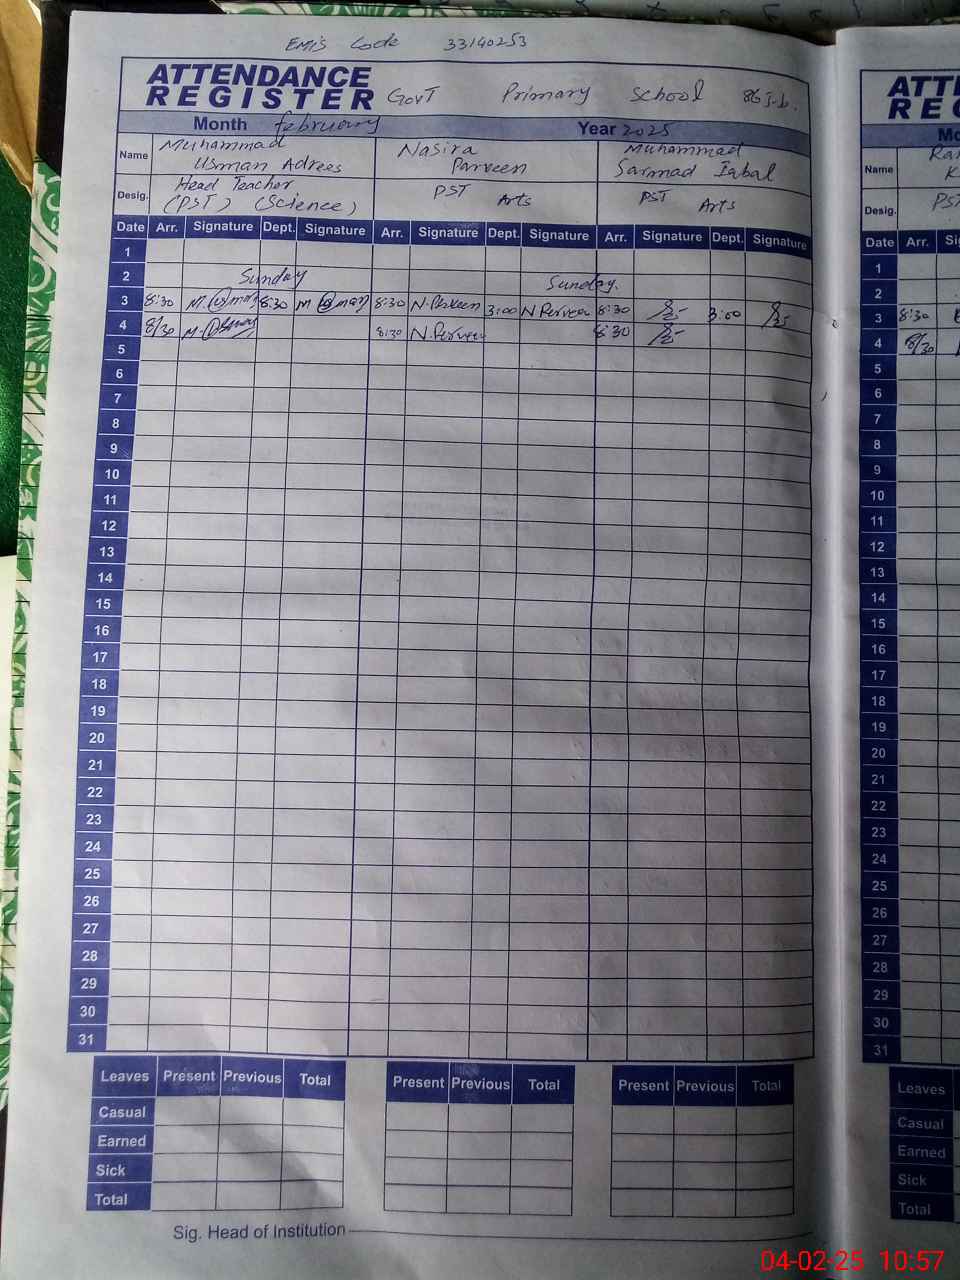 EMIS Code 33140253
ATTENDANCE
REGISTER
GovT Primary School 86 J.b.
Month february Year 2025
Name Muhammad Usman Adrees Nasira Parveen Muhammad Sarmad Iqbal
Desig. Head Teacher (PST) (Science) PST Arts PST Arts
Date Arr. Signature Dept. Signature Arr. Signature Dept. Signature Arr. Signature Dept. Signature
1
2 Sunday Sunday.
3 8:30 M. Usman 8:30 M Usman 8:30 N.Parveen 3:00 N Perveen 8:30 3:00
4 8/30 M. Usman 8:30 N.Perveen 8:30
5
6
7
8
9
10
11
12
13
14
15
16
17
18
19
20
21
22
23
24
25
26
27
28
29
30
31
Leaves Present Previous Total Present Previous Total Present Previous Total
Casual
Earned
Sick
Total
Sig. Head of Institution
ATT
REG
Name
Desig. PST
Date Arr.
1
2
3 8:30
4 8/30
5
6
7
8
9
10
11
12
13
14
15
16
17
18
19
20
21
22
23
24
25
26
27
28
29
30
31
Leaves
Casual
Earned
Sick
Total
04-02-25 10:57